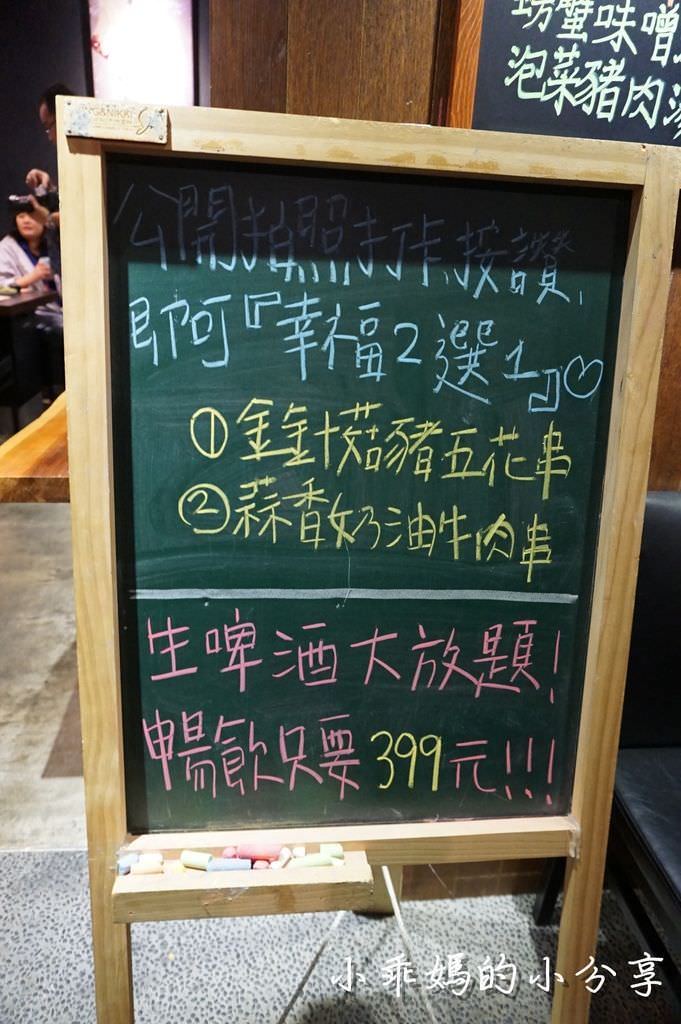 螃蟹味噌
泡菜豬肉湯
公開拍照打卡按讚,
即可『幸福2選1』♡
①金針菇豬五花串
②蒜香奶油牛肉串
生啤酒大放題!
暢飲只要399元!!!
小乖媽的小分享